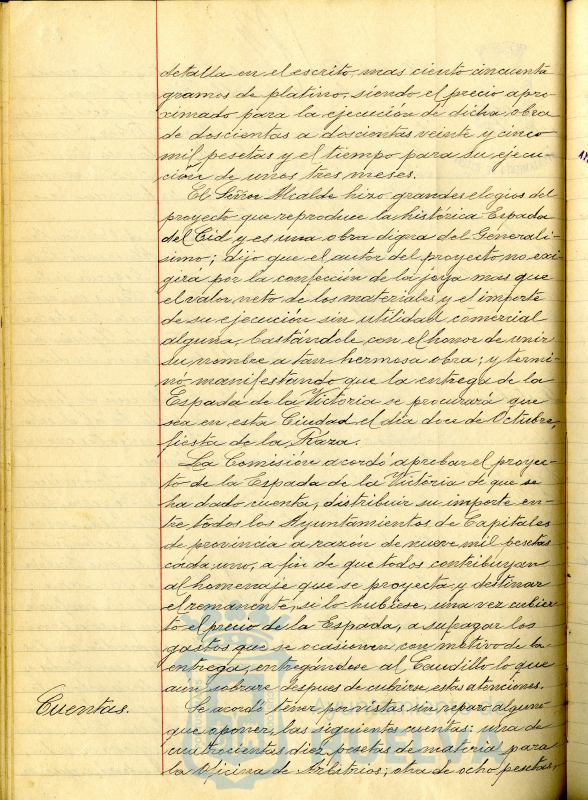 detalla en el escrito, mas ciento cincuenta
gramos de platino, siendo el precio apro-
ximado para la ejecución de dicha obra
de doscientas a doscientas veinte y cinco
mil pesetas y el tiempo para su ejecu-
ción de unos tres meses.
El Señor Alcalde hizo grandes elogios del
proyecto que reproduce la histórica Espada
del Cid y es una obra digna del Generalí-
simo; dijo que el autor del proyecto no exi-
girá por la confección de la joya mas que
el valor neto de los materiales y el importe
de su ejecución sin utilidad comercial
alguna, bastándole con el honor de unir
su nombre a tan hermosa obra; y termi-
nó manifestando que la entrega de la
Espada de la Victoria se procurará que
sea en esta Ciudad el día doce de Octubre,
fiesta de la Raza.
La Comisión acordó aprobar el proyec-
to de la Espada de la Victoria de que se
ha dado cuenta, distribuir su importe en-
tre todos los Ayuntamientos de Capitales
de provincia a razón de nueve mil pesetas
cada uno, a fin de que todos contribuyan
al homenaje que se proyecta y destinar
el remanente, si lo hubiese, una vez cubier-
to el precio de la Espada, a sufragar los
gastos que se ocasionen con motivo de la
entrega, entregándose al Caudillo lo que
aun sobrare despues de cubrirse estas atenciones.
Cuentas.
Se acordó tener por vistas sin reparo alguno
que oponer, las siguientes cuentas: una de
cuatrocientas diez pesetas de material para
la Oficina de Arbitrios; otra de ocho pesetas,